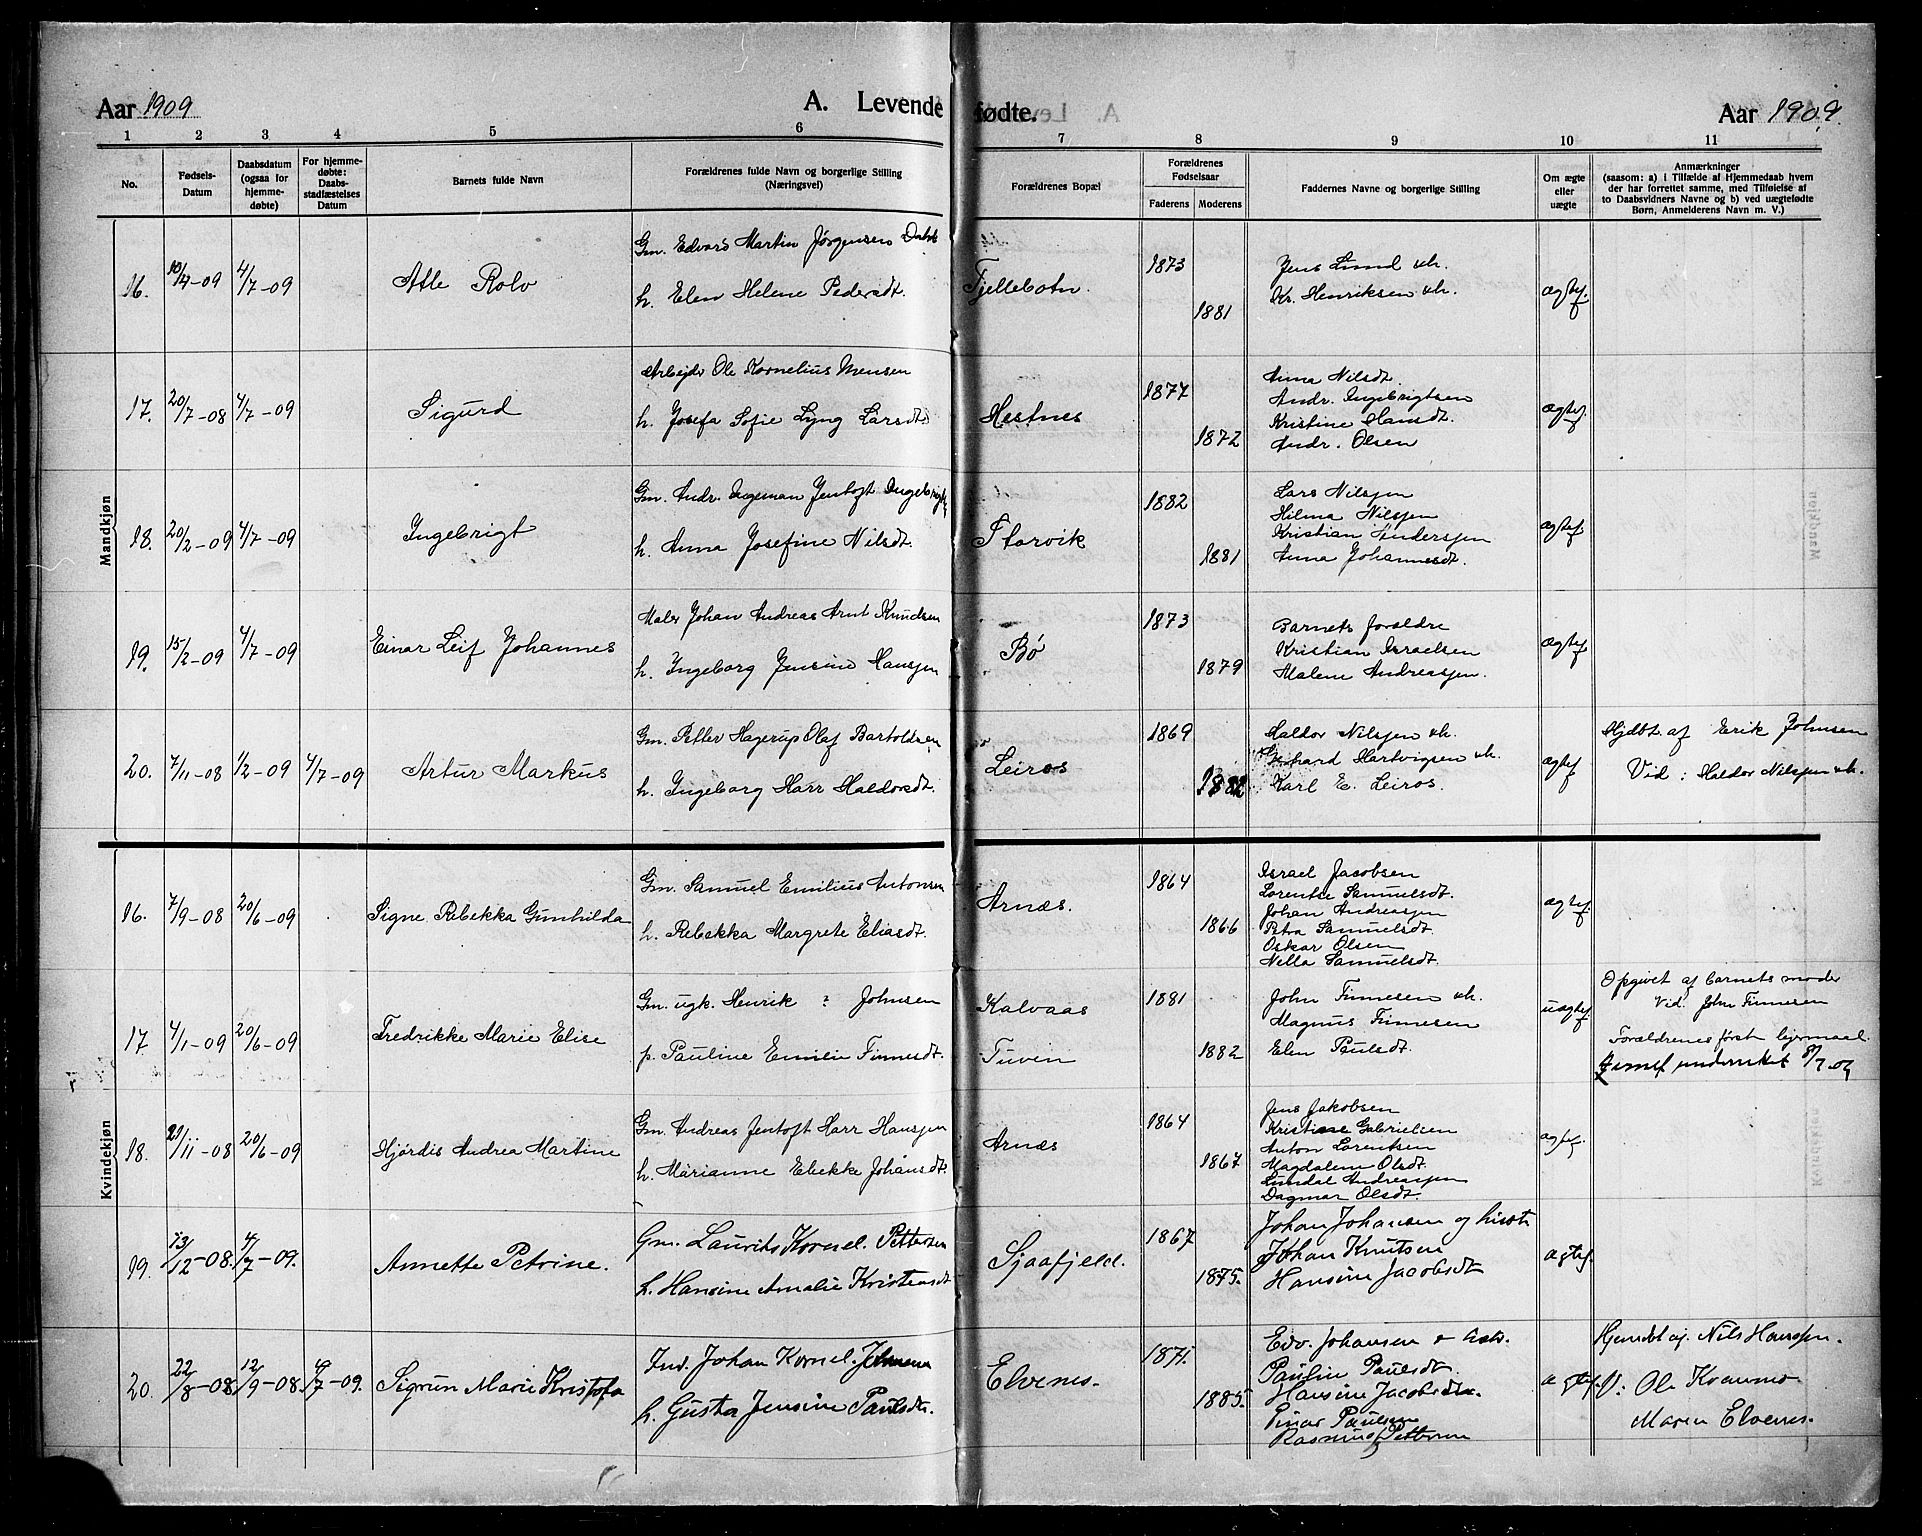 Aar 1909
A. Levende
fødte.
Aar 1909.
1 2 3 4 5 6 7 8 9 10 11
No.
Fødsels-
Datum
Daabsdatum
(ogsaa for
hjemme-
døbte)
For hjemme-
døbte:
Daabs-
stadfæstelses
Datum
Barnets fulde Navn
Forældrenes fulde Navn og borgerlige Stilling
(Næringsvei)
Forældrenes Bopæl
Forældrenes
Fødselsaar
Faderens Moderens
Faddernes Navne og borgerlige Stilling
Om ægte
eller
uægte
Anmærkninger
(saasom: a) i Tilfælde af Hjemmedaab hvem
der har forrettet samme, med Tilføielse af
to Daabsvidners Navne og b) ved uægtefødte
Børn, Anmelderens Navn m. V.)
Mandkjøn
16. 10/4-09 4/7-09
Atle Rolv
Gm. Edvard Martin Jørgensen
h. Elen Helene Pedersdt.
Fjellebotn.
1873
1881
Jens Lund &h.
Kr. Henriksen &h.
ægtef.
17. 20/7-08 4/7-09
Sigurd
Arbejder Ole Kornelius Monsen
h. Josefa Sofie Lyng Larsdt.
Hestnes
1877
1872
Anna Nilsdt.
Andr. Ingebrigtsen
Kristine Hansdt.
Andr. Olsen
ægtef.
18. 20/2-09 4/7-09
Ingebrigt
Gm. Andr. Ingeman Jentoft
h. Anna Josefine Nilsdt.
Storvik
1882
1881
Lars Nilssen
Hilma Nilssen
Kristian Anderssen
Anna Johannesdt.
ægtef.
19. 15/2-09 4/7-09
Einar Leif Johannes
Maler Johan Andreas Arnt Knudsen
h. Ingeborg Jensine Hanssen
Bø
1873
1879
Barnets forældre
Kristian Israelsen
Malene Andreassen.
ægtef
20. 7/11-08 1/2-09 4/7-09
Artur Markus
Gm. Petter Hagerup Olaf Bartoldsen
h. Ingeborg Harr Haldorsdt.
Leiros
1869
1882
Haldor Nilssen &h.
Gerhard Hartvigsen &h.
Karl E. Leiros.
ægtef
Hjdbt. af Erik Johnsen
Vid: Haldor Nilssen &h.
Kvindekjøn
16. 7/9-08 20/6-09
Signe Rebekka Gunhilda
Gm. Samuel Emilius Antonsen
h. Rebekka Margrete Eliasdt.
Arnæs.
1864
1866
Israel Jacobsen
Lorentse Samuelsdt.
Johan Andreassen
Petra Samuelsdt.
Oskar Olsen
Nella Samuelsdt.
ægtef.
17. 4/1-09 20/6-09
Fredrikke Marie Elise
Gm. ugk. Henrik ? Johnsen
p. Pauline Emilie Finnesdt.
Kalvaas
Tuvin
1881
1882
John Finnesen &h.
Magnus Finnesen
Elen Paulsdt.
uægtef
Opgivet af barnets moder
Vid. John Finnesen
Forældrenes først lejermaal.
underrettet 8/7 09
18. 21/11-08 20/6-09
Hjørdis Andrea Martine
Gm. Andreas Jentoft Harr Hanssen
h. Marianne Elvekke Johansdt.
Arnæs
1864
1867
Jens Jakobsen
Kristine Gabrielsen
Anton Lorentsen
Magdalene Olsdt.
Lundal Andreassen
Dagmar Olsdt.
ægtef.
19. 13/12-08. 4/7-09.
Annette Petrine.
Gm. Laurits Kornel. Pettersen
h. Hansine Amalie Kristensdt
Sjaafjeld.
1867
1875.
Johan Johansen og hustr
Johan Knutsen
Hansine Jacobsdt
ægtef.
20. 22/8-08 12/9-08 4/7-09.
Sigrun Marie Kristofa
Ind. Johan Kornel. Johnsen
h. Gusta Jensine Paulsdt.
Elvenes.
1871.
1885.
Edv. Johansen &
Paulin Paulsdt
Hansine Jacobsdt.
Einar Paulsen
Rasmus Pettersen
ægtef.
Hjemdbt af. Nils Hanssen.
V: Ole Kranmo
Maren Elvenes.